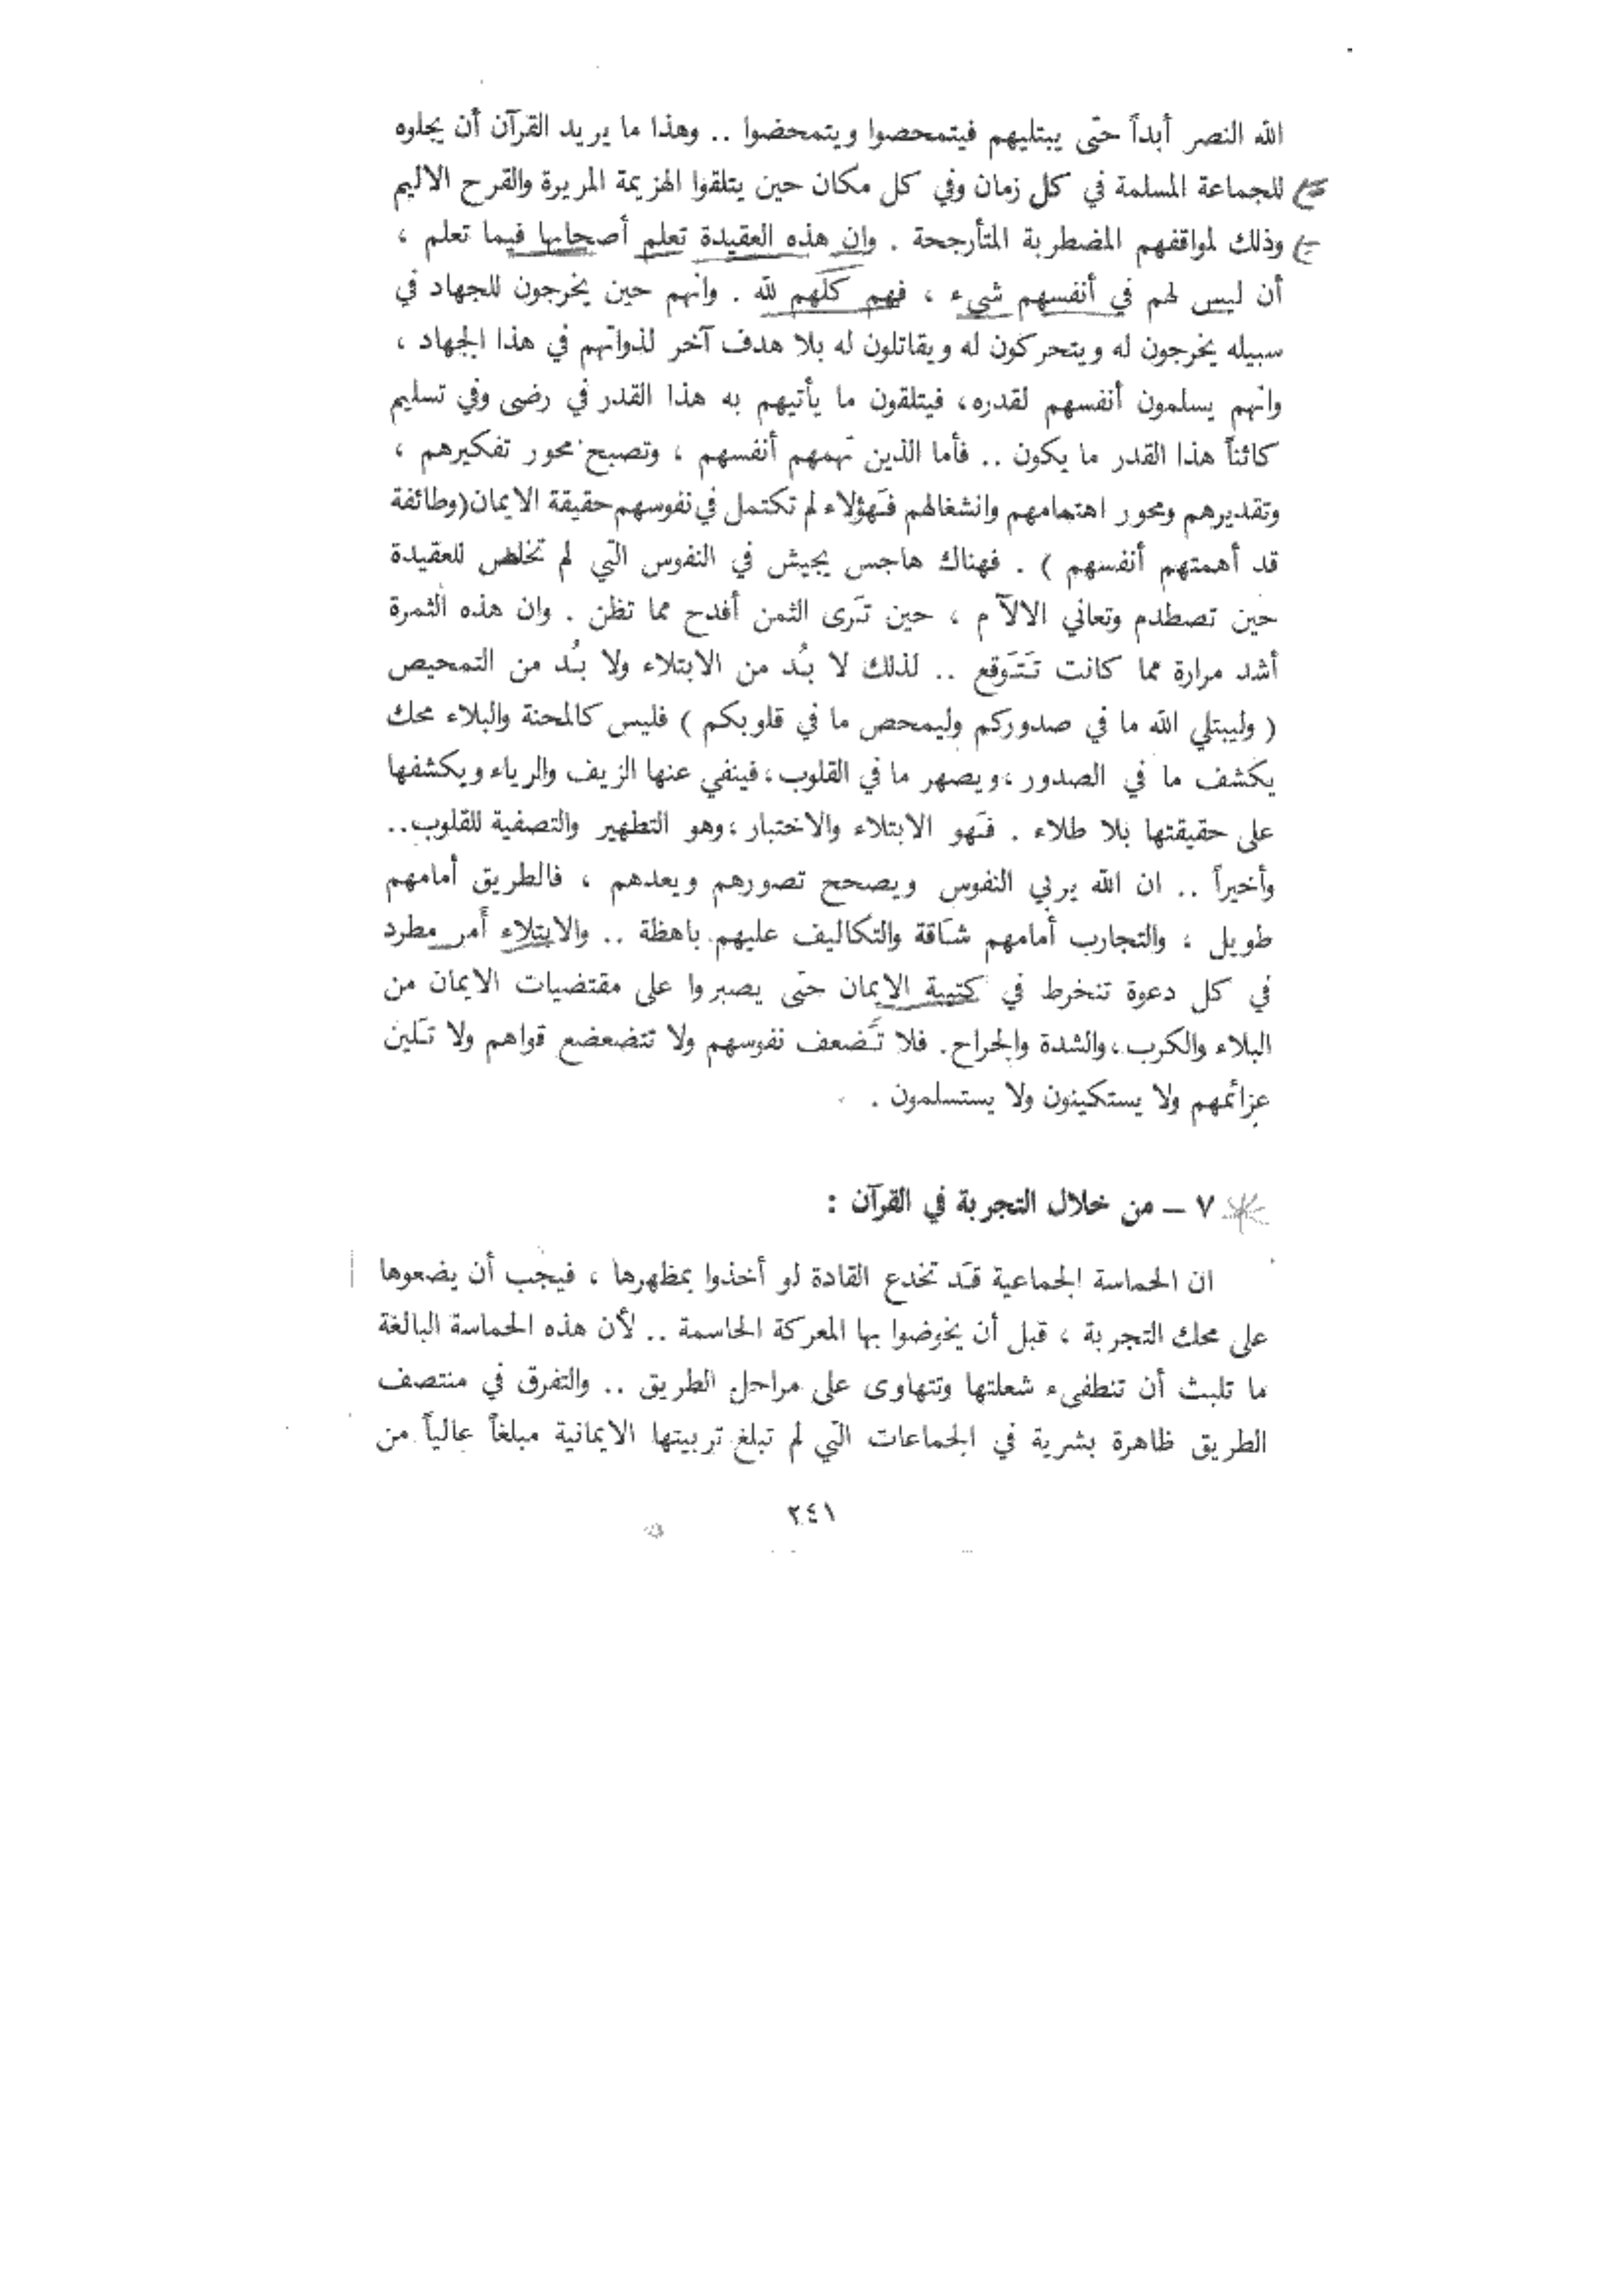 الله النصر أبداً حتى يبتليهم فيتمحصوا ويتمحضوا .. وهذا ما يريد القرآن أن يجلوه
للجماعة المسلمة في كل زمان وفي كل مكان حين يتلقوا الهزيمة المريرة والقرح الاليم
وذلك لمواقفهم المضطربة المتأرجحة . وان هذه العقيدة تعلم أصحابها فيما تعلم ،
أن ليس لهم في أنفسهم شيء ، فهم كلهم لله . وانهم حين يخرجون للجهاد في
سبيله يخرجون له ويتحركون له ويقاتلون له بلا هدف آخر لذواتهم في هذا الجهاد ،
وانهم يسلمون أنفسهم لقدره، فيتلقون ما يأتيهم به هذا القدر في رضى وفي تسليم
كائناً هذا القدر ما يكون .. فأما الذين تهمهم أنفسهم ، وتصبح محور تفكيرهم ،
وتقديرهم ومحور اهتمامهم وانشغالهم فهؤلاء لم تكتمل في نفوسهم حقيقة الايمان (وطائفة
قد أهمتهم أنفسهم ) . فهناك هاجس يجيش في النفوس التي لم تخلص للعقيدة
حين تصطدم وتعاني الالآم ، حين تَرى الثمن أفدح مما تظن . وان هذه الثمرة
أشد مرارة مما كانت تَتَوقع .. لذلك لا بُد من الابتلاء ولا بُد من التمحيص
( وليبتلي الله ما في صدوركم وليمحص ما في قلوبكم ) فليس كالمحنة والبلاء محك
يكشف ما في الصدور ، ويصهر ما في القلوب ، فينفي عنها الزيف والرياء ويكشفها
على حقيقتها بلا طلاء . فهو الابتلاء والاختبار ، وهو التطهير والتصفية للقلوب..
وأخيراً .. ان الله يربي النفوس ويصحح تصورهم ويعدهم ، فالطريق أمامهم
طويل ، والتجارب أمامهم شاقة والتكاليف عليهم باهظة .. والابتلاء أمر مطرد
في كل دعوة تنخرط في كتيبة الايمان حتى يصبروا على مقتضيات الايمان من
البلاء والكرب ، والشدة والجراح. فلا تَضعف نفوسهم ولا تتضعضع قواهم ولا تَلين
عزائمهم ولا يستكينون ولا يستسلمون .
٧ – من خلال التجربة في القرآن :
ان الحماسة الجماعية قَد تخدع القادة لو أخذوا بمظهرها ، فيجب أن يضعوها
على محك التجربة ، قبل أن يخوضوا بها المعركة الحاسمة .. لأن هذه الحماسة البالغة
ما تلبث أن تنطفىء شعلتها وتتهاوى على مراحل الطريق .. والتفرق في منتصف
الطريق ظاهرة بشرية في الجماعات التي لم تبلغ تربيتها الايمانية مبلغاً عالياً من
٢٤١